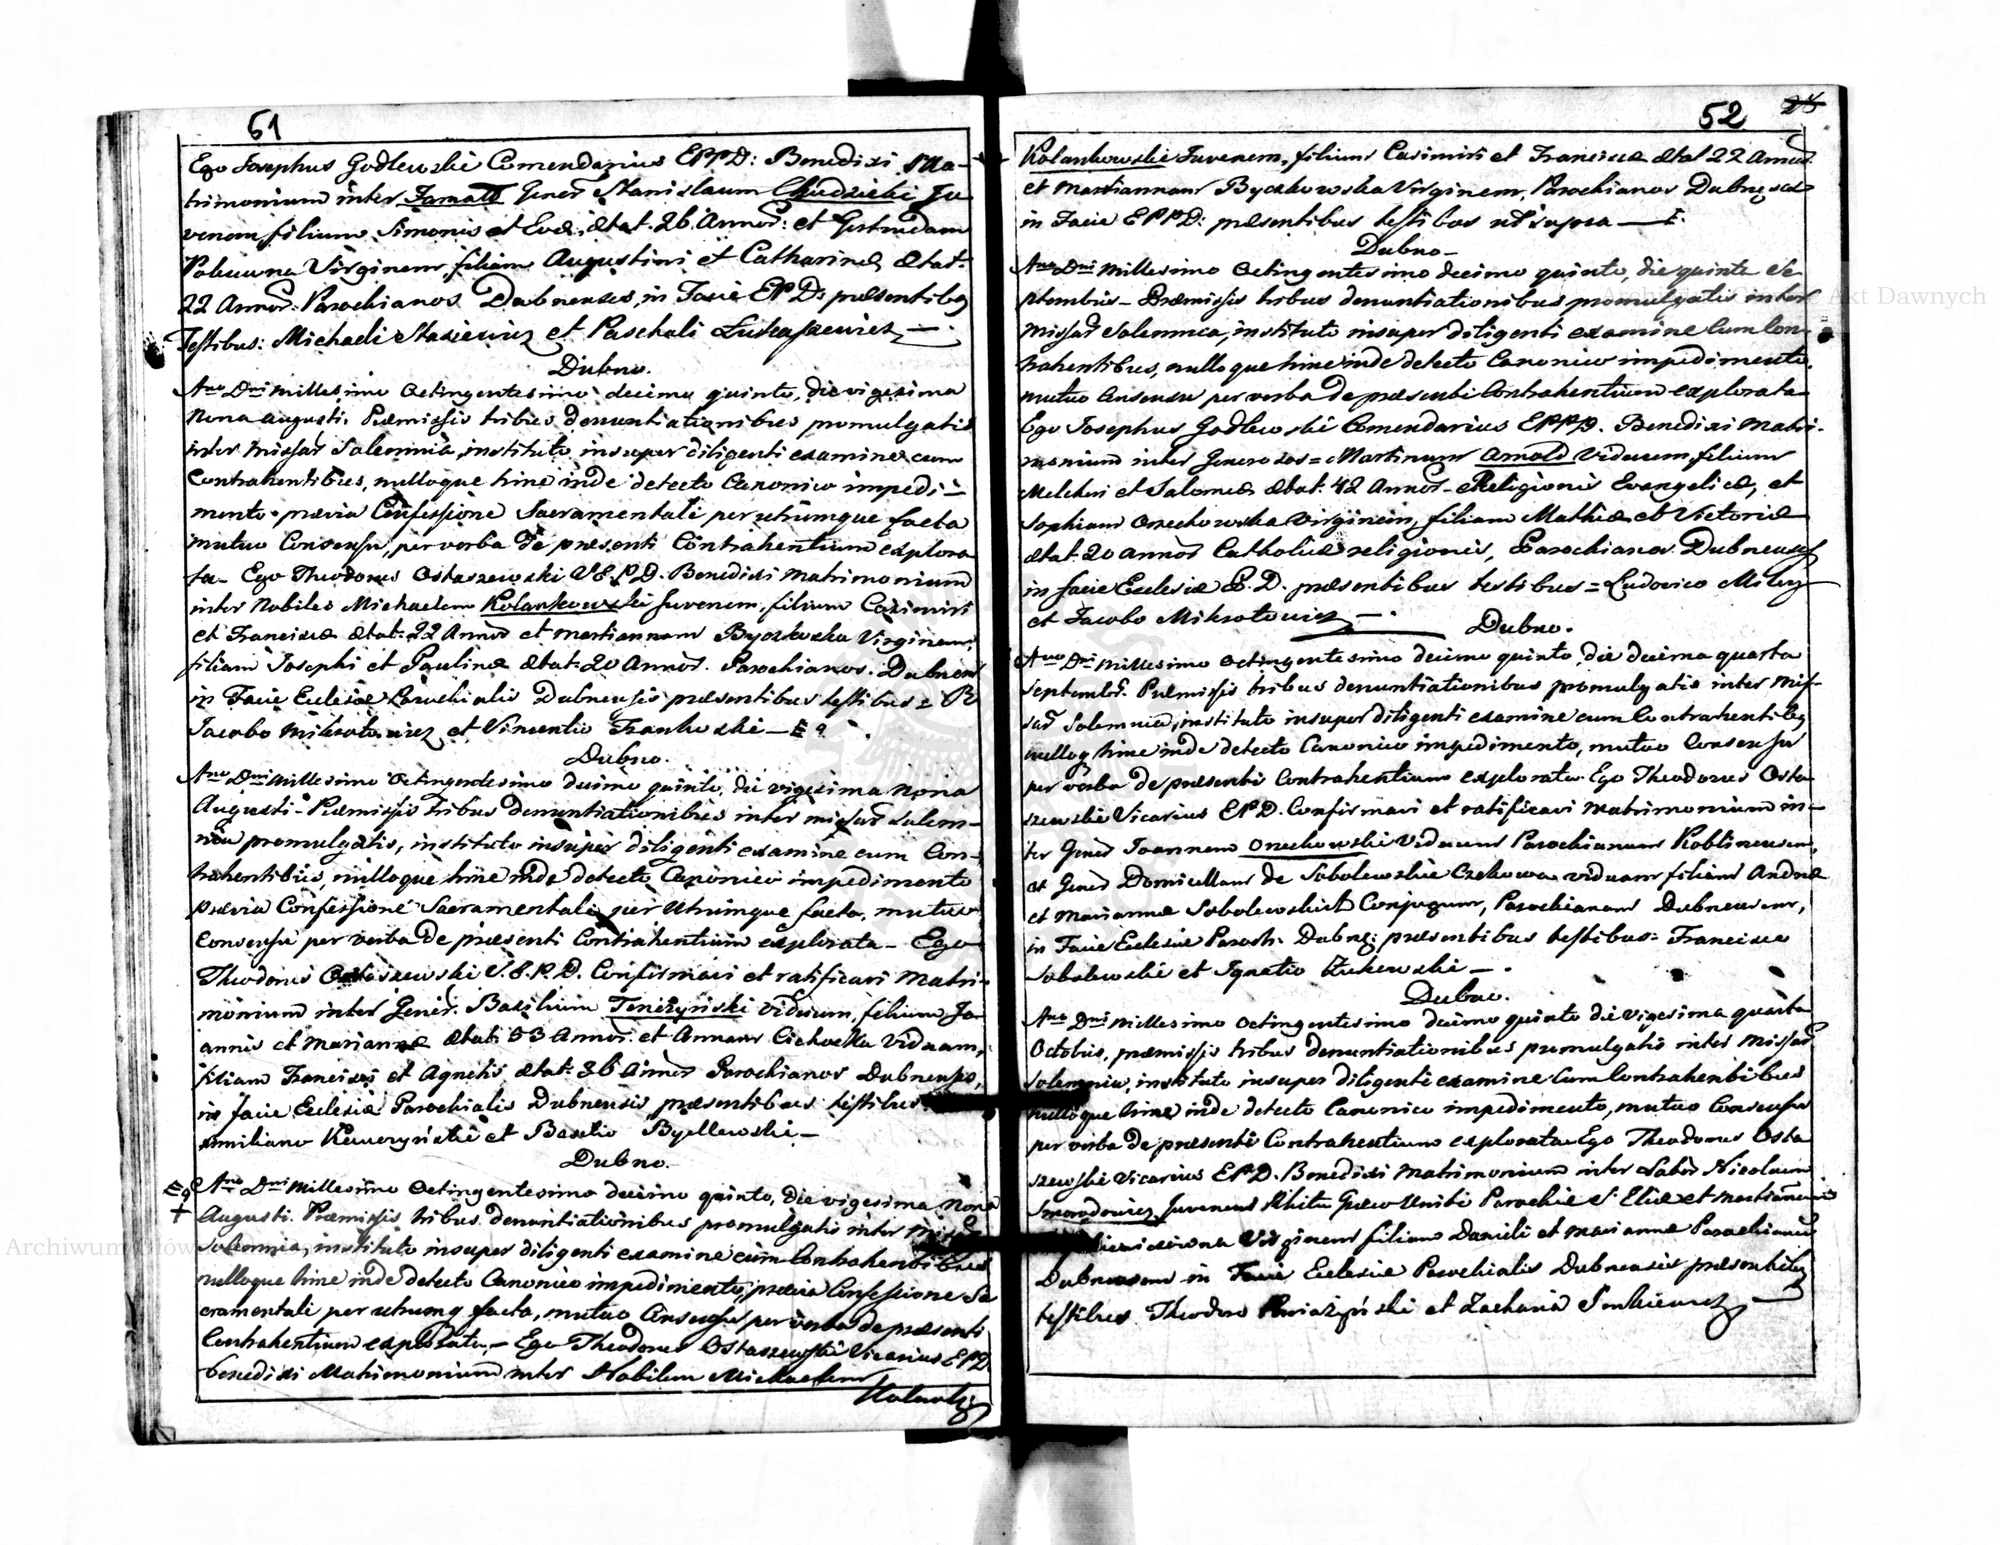 51
Ego Josephus Godlewski Comendarius EPPD: Benedixi Ma-
trimonium inter Famatt Gener Stanislaum Chudzicki Ju
venem, filium Simonis et Evæ, ætat. 26 Annor: et Gertrudam
Virginem, filiam Augustini et Catharinæ ætat.
22 Annor: Parochianos Dubnenses, in Facie EPD: præsentibq
Testibus: Michaeli Stasiewicz et Paschali Lukaszewicz —.
Dubno.
Ano Dni Millesimo Octingentesimo decimo quinto, die vigesima
Nona Augusti. Præmissis tribus denuntiationibus promulgatis
inter Missar Solemnia, instituto insuper diligenti examine cum
Contrahentibus, nulloque hinc inde detecto Canonico impedi-
mento prævia Confessione Sacramentali per utrumque facta
mutuo Consensu, per verba de præsenti Contrahentium explora
ta- Ego Theodorus Ostaszewski VEPD. Benedixi Matrimonium
inter Nobiles Michaelem Kolankowski Juvenem, filium Casimiri
et Franciscæ ætat. 22 Annor et Mariannam Byczkowska Virginem,
filiam Josephi et Paulinæ ætat. 20 Annor. Parochianos Dubnen
in Facie Eclesiæ Parochialis Dubnensis præsentibus testibus = R
Jacobo Mikrotowicz et Vincentio Frankowski —
Dubno.
Ano Dni Millesimo Octingentesimo decimo quinto, die vigesima Nona
Augusti- Præmissis tribus denuntiationibus inter Missar Solem-
nia promulgatis, instituto insuper diligenti examine cum Con-
trahentibus, nulloque hinc inde detecto Canonico impedimento
prævia Confessione Sacramentali per utrumque facta, mutuo
Consensu per verba de præsenti Contrahentium explorata- Ego
Theodorus Ostaszewski V.E.P.D. Confirmavi et ratificavi Matri-
monium inter Gener. Basilium Tenczynski Viduum, filium Jo
annis et Mariannæ ætat. 53 Annor. et Annam Cichocka Viduam,
filiam Francisci et Agnetis, ætat. 36 Annor Parochianos Dubnenses,
in facie Eclesiæ Parochialis Dubnensis præsentibus testibus
et Basilio Byllewski —
Dubno.
Ano Dni Millesimo Octingentesimo decimo quinto, die vigesima Nona
Augusti. Præmissis tribus denuntiationibus promulgatis inter
Solemnia, instituto insuper diligenti examine cum Contrahentibus
nulloque hinc inde detecto Canonico impedimento, prævia Confessione Sa
cramentali per utrumq facta, mutuo Consensu per verba de præsenti
Contrahentium explorato,- Ego Theodorus Ostaszewski Vicarius EPD
benedixi Matrimonium inter Nobilem Michaelem
Kolank:
52
Kolankowski Juvenem, filium Casimiri et Franciscæ ætat 22 Annor
et Mariannam Byczkowska Virginem, Parochianos Dubnenses
in Facie EPPD: præsentibus testibus ut supra —
Dubno-
Ano Dni Millesimo Octingentesimo decimo quinto, die quinta Se
ptembris- Præmissis tribus denuntiationibus promulgatis inter
Missar Solemnia, instituto insuper diligenti examine Cum Con-
trahentibus, nulloque hinc inde detecto Canonico impedimento,
mutuo Consensu per verba de præsenti Contrahentium explorata
Ego Josephus Godlewski Comendarius EPPD. Benedixi Matri-
monium inter Generosos = Martinum Arnold Viduum, filium
Melchiri et Salomeæ ætat. 42 Annor- Religionis Evangelicæ, et
Sophiam Orzechowska Virginem, filiam Mathiæ et Victoriæ
ætat. 20 annor Catholicæ religionis, Parochianos Dubnenses
in facie Eclesiæ P. D. præsentibus testibus = Ludovico
et Jacobo Mikrotowicz —.
Dubno.
Ano Dni Millesimo Octingentesimo decimo quinto, die decima quarta
Septembr. Præmissis tribus denuntiationibus promulgatis inter Mis-
sar Solemnia, instituto insuper diligenti examine cum Contrahentibq
nulloq hinc inde detecto Canonico impedimento, mutuo Consensu
per verba de præsenti Contrahentium explorato Ego Theodorus Osta
szewski Vicarius EPD. Confirmavi et ratificavi Matrimonium in-
ter Gener Joannem Orzechowski Viduum Parochianum Koblinensem,
et Gener Domicellam de Sobolewskie Czekowa viduam filiam Andreæ
et Mariannæ Sobolewskich Conjugum, Parochianam Dubnensem,
in Facie Eclesiæ Paroch: Dubn: præsentibus testibus: Francisco
Sobolewski et Ignatio Zukowski —.
Dubno.
Ano Dni Millesimo Octingentesimo decimo quinto die vigesima quarta
Octobris, præmissis tribus denuntiationibus promulgatis inter Missar
Solemnia, instituto insuper diligenti examine Cum Contrahentibus
nulloque hinc inde detecto Canonico impedimento, mutuo Consensu
per verba de præsenti Contrahentium explorata Ego Theodorus Osta
szewski Vicarius EPD. Benedixi Matrimonium inter Labor Nicolaum
Smorodowicz Juvenem Ritu Græco Uniti Parochiæ S. Eliæ et
Virginem filiam Danieli et Mariannæ Parochianam
Dubnensem in Facie Eclesiæ Parochialis Dubnensis præsentibq
testibus Theodoro et Zacharia Sinkiewicz
Archiwum Główne Akt Dawnych